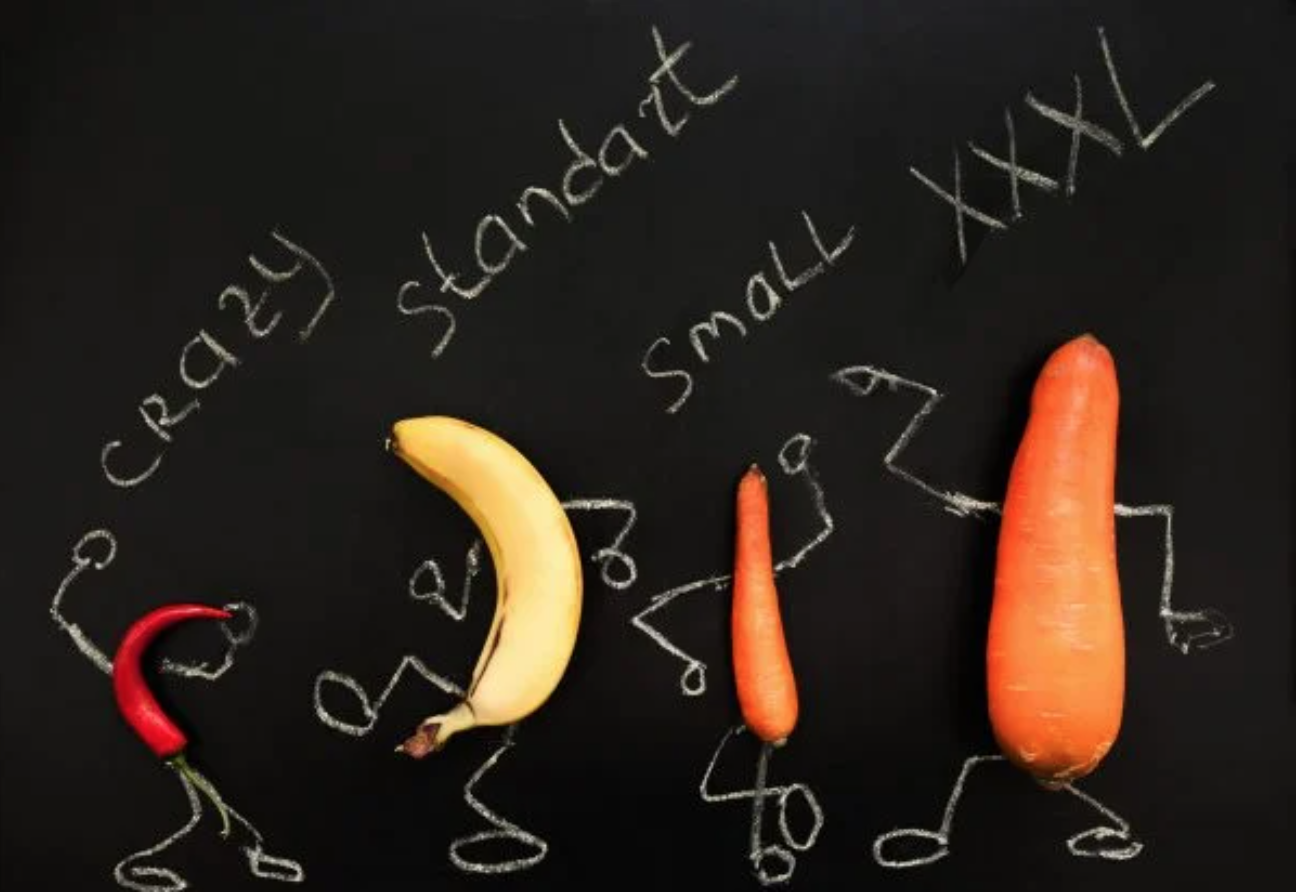 CRAZY
Standart
SmaLL
XXXL